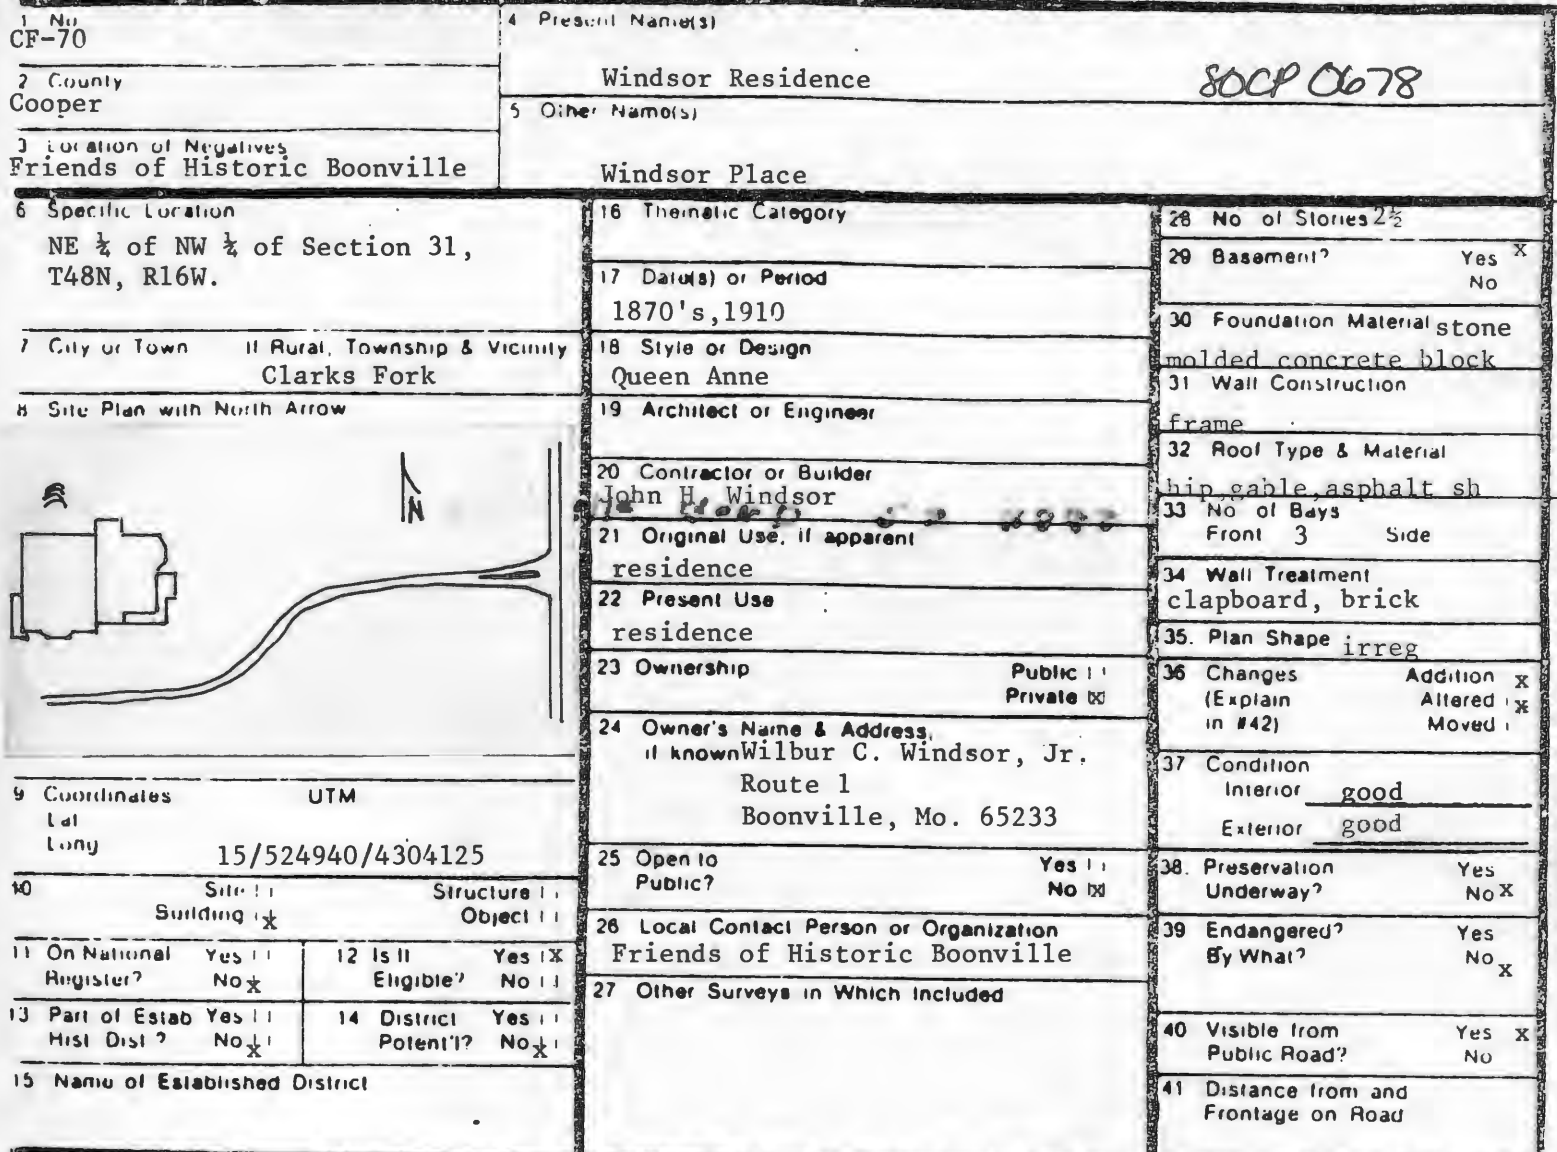 1 No
CF-70
2 County
Cooper
3 Location of Negatives
Friends of Historic Boonville
4 Present Name(s)
Windsor Residence
SOCP 0678
5 Other Name(s)
Windsor Place
6 Specific Location
NE ¼ of NW ¼ of Section 31,
T48N, R16W.
7 City or Town If Rural, Township & Vicinity
Clarks Fork
8 Site Plan with North Arrow
N
9 Coordinates UTM
Lat
Long
15/524940/4304125
10 Site Structure
Building x Object
11 On National Yes
Register? No x
12 Is It Yes X
Eligible? No
13 Part of Estab Yes
Hist Dist? No x
14 District Yes
Potent'l? No x
15 Name of Established District
16 Thematic Category
17 Date(s) or Period
1870's,1910
18 Style or Design
Queen Anne
19 Architect or Engineer
20 Contractor or Builder
John H. Windsor
21 Original Use, if apparent
residence
22 Present Use
residence
23 Ownership Public
Private X
24 Owner's Name & Address,
if known Wilbur C. Windsor, Jr.
Route 1
Boonville, Mo. 65233
25 Open to Yes
Public? No X
26 Local Contact Person or Organization
Friends of Historic Boonville
27 Other Surveys in Which Included
28 No of Stories 2½
29 Basement? Yes X
No
30 Foundation Material stone
molded concrete block
31 Wall Construction
frame
32 Roof Type & Material
hip,gable,asphalt sh
33 No of Bays
Front 3 Side
34 Wall Treatment
clapboard, brick
35. Plan Shape irreg
36 Changes Addition x
(Explain Altered x
in #42) Moved
37 Condition
Interior good
Exterior good
38. Preservation Yes
Underway? No X
39 Endangered? Yes
By What? No X
40 Visible from Yes X
Public Road? No
41 Distance from and
Frontage on Road